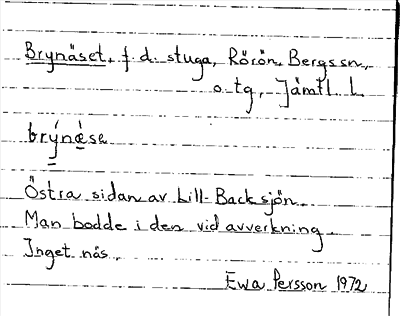 Brynäset, f.d. stuga, Rörön, Bergs sn,
o. tg, Jämtl. l.
brýnæ̀se
Östra sidan av Lill-Backsjön.
Man bodde i den vid avverkning.
Inget näs.
Ewa Persson 1972